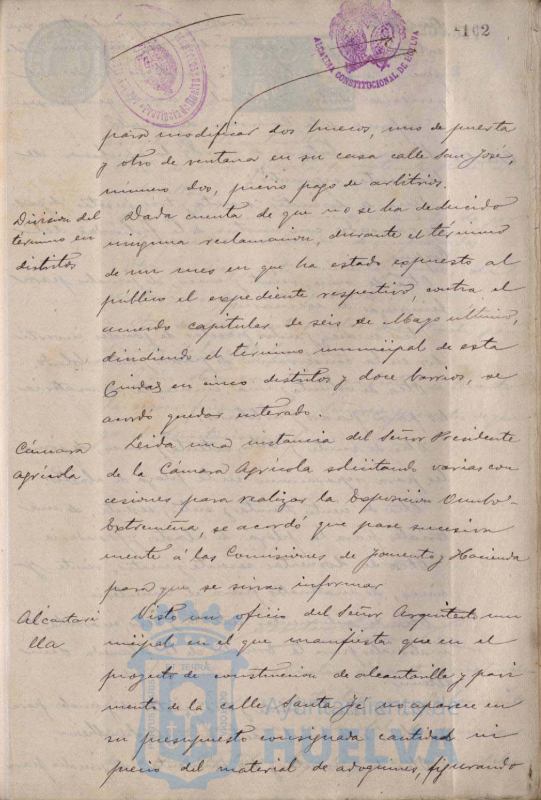 -102
ALCALDIA CONSTITUCIONAL DE HUELVA
para modificar dos huecos, uno de puerta
y otro de ventana en su casa calle San José,
numero dos, previo pago de arbitrios.
Division del
término en
distritos
Dada cuenta de que no se ha deducido
ninguna reclamacion, durante el término
de un mes en que ha estado expuesto al
público el expediente respectivo, contra el
acuerdo capitular de seis de Mayo ultimo,
dividiendo el término municipal de esta
Ciudad en cinco distritos y doce barrios, se
acordó quedar enterado.
Cámara
Agrícola
Leida una instancia del Señor Presidente
de la Cámara Agrícola solicitando varias con
cesiones para realizar la Exposicion Onubo-
Extremeña, se acordó que pase sucesiva
mente á las Comisiones de Fomento y Hacienda
para que se sirvan informar
Alcantari
lla
Visto un oficio del Señor Arquitecto mu
nicipal en el que manifiesta que en el
proyecto de construccion de alcantarilla y pavi
mento de la calle Santa Fé no aparece en
su presupuesto consignada cantidad ni
precio del material de adoquines, figurando
Ayuntamiento de
HUELVA